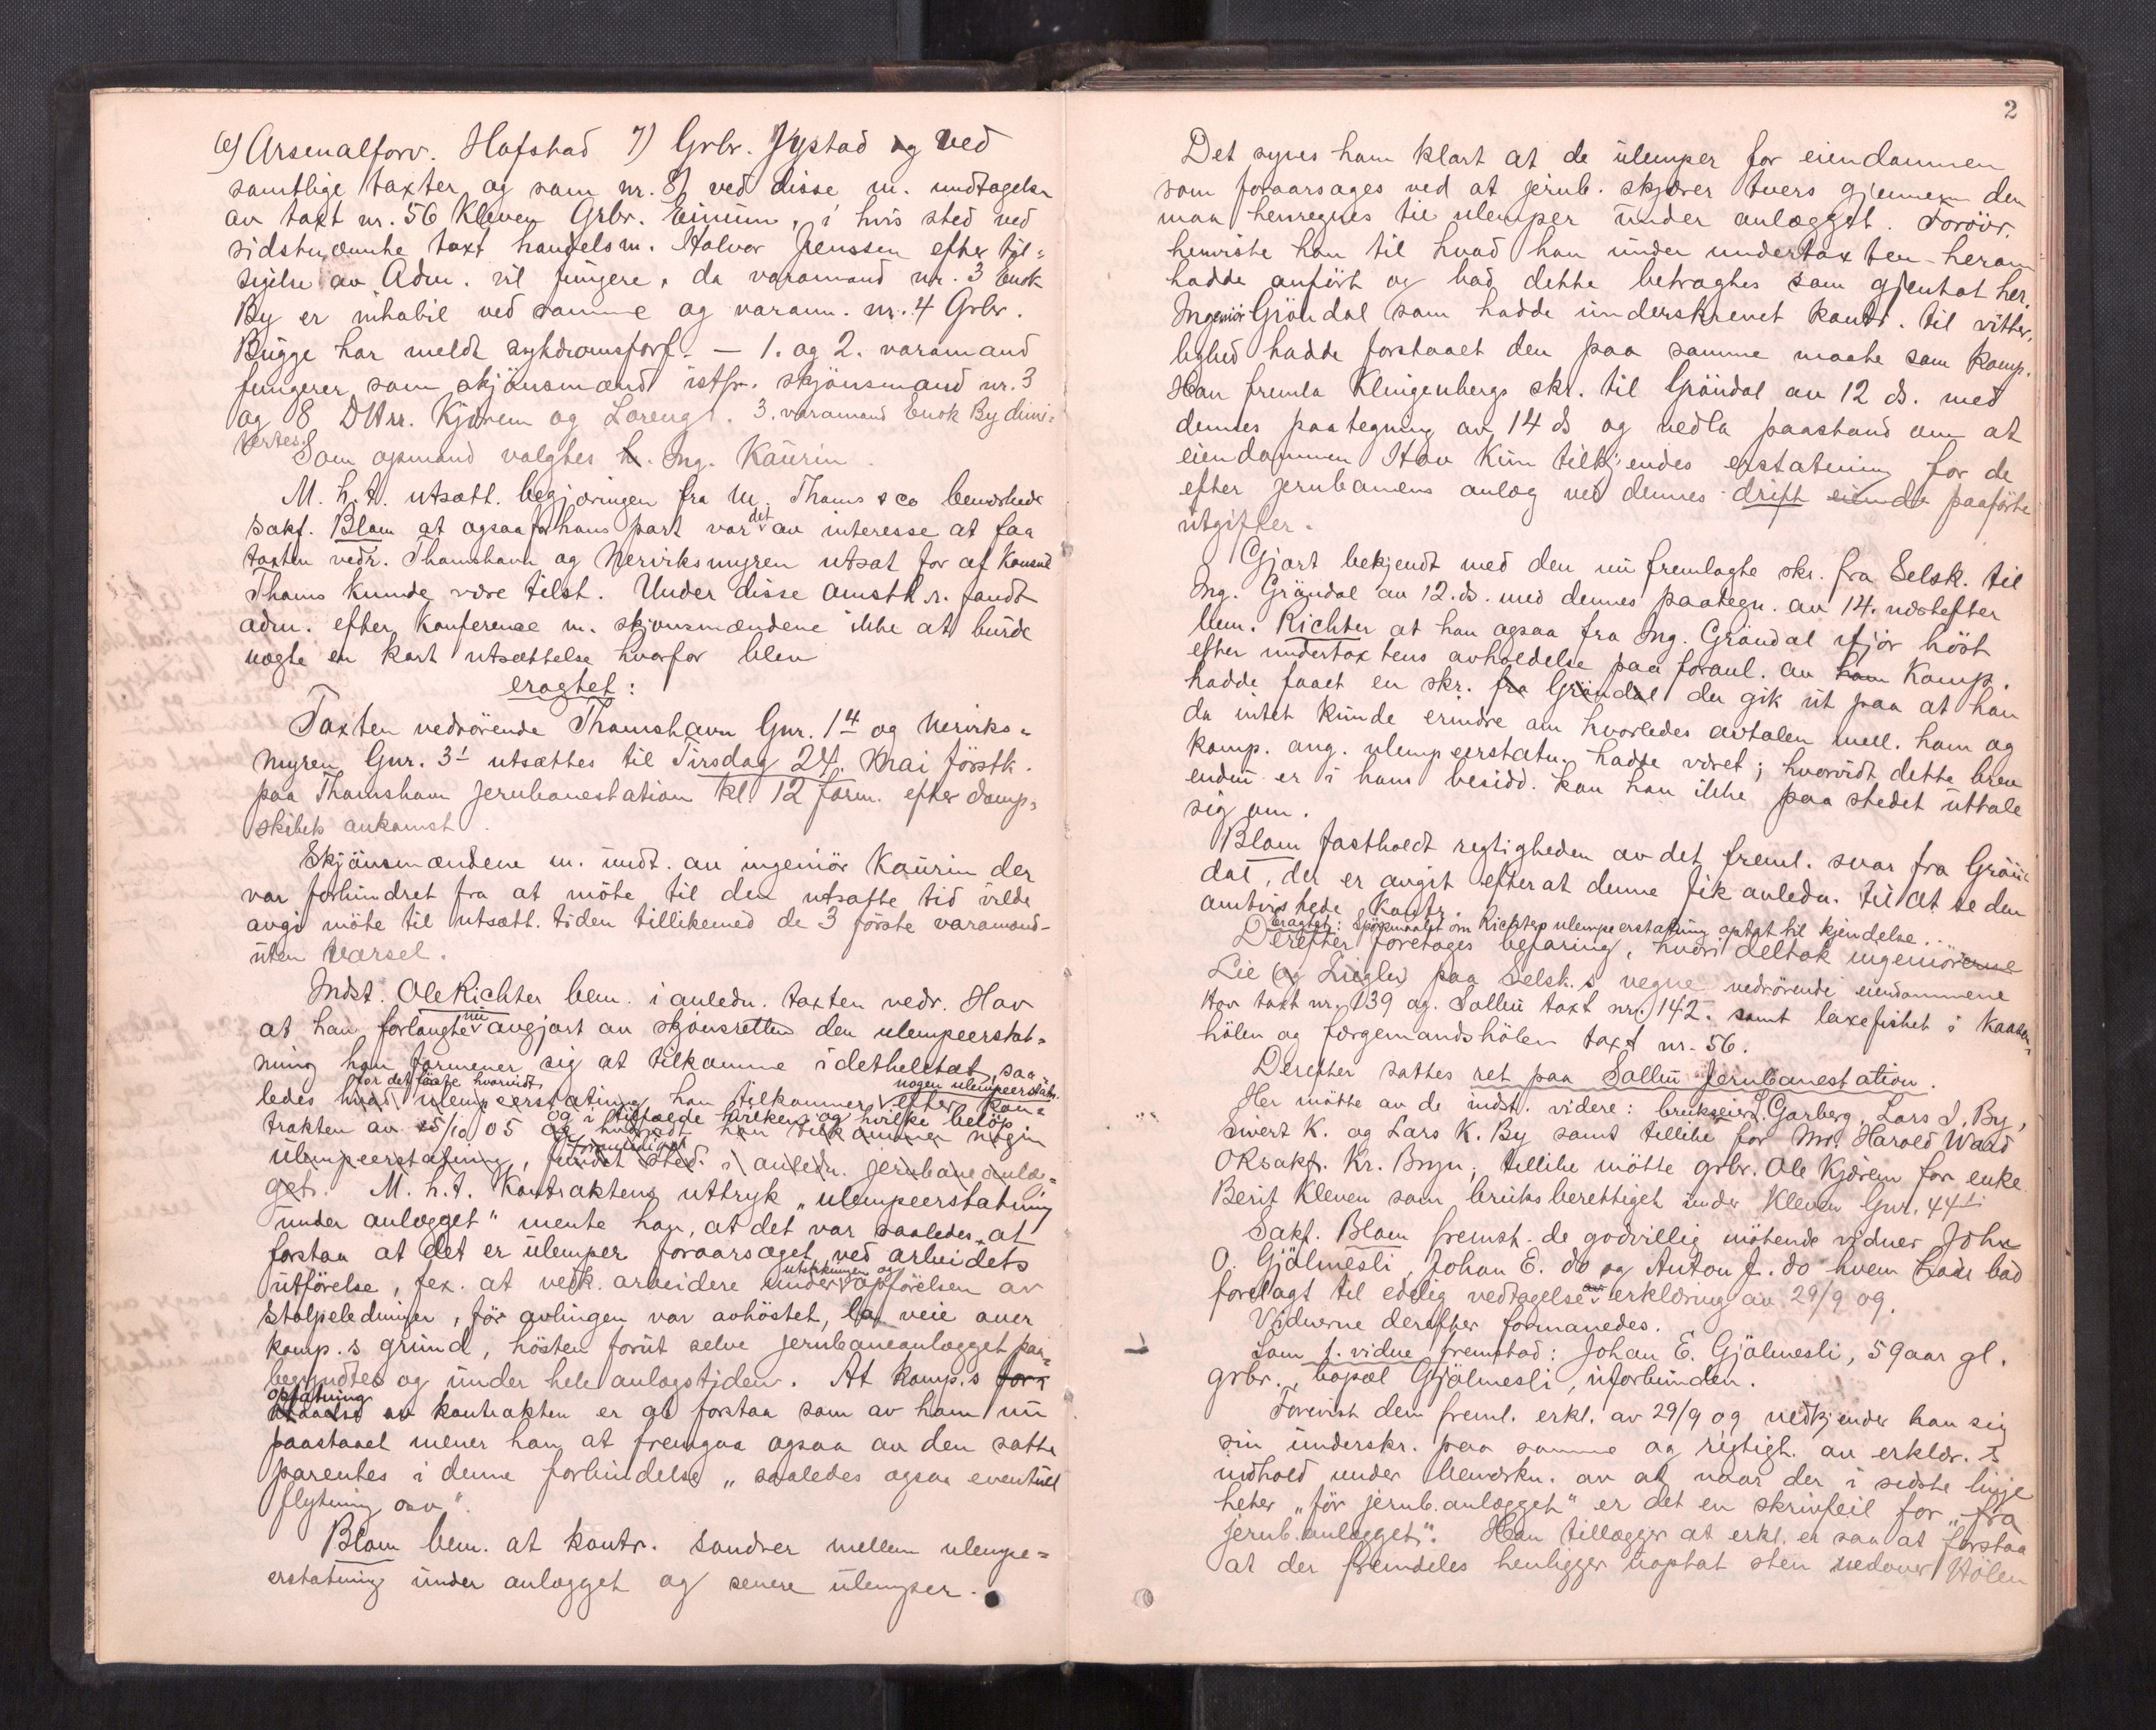 6) Arsenalforv. Hafstad 7) Grbr. Jystad og ved
samtlige taxter og som nr. 8, ved disse m. undtagelse
av taxt nr. 56 Kleven Grbr. Einum, i hvis sted ved
sidstnævnte taxt handelsm. Halvor Jenssen efter til-
sigelse av Adm. vil fungere, da varamand nr. 3 Enok
By er inhabil ved samme og varam. nr. 4 Grbr.
Bugge har meldt sykdomsforf. — 1. og 2. varamand
fungerer som skjönsmænd istf. skjönsmænd nr. 3
og 8 DHrr. Kjörem og Loreng. 3. varamand Enok By dimi-
tertes.
Som opmand valgtes h. Ing. Kaurin.
M. h. t. utsætt. begjæringen fra M. Thams & co bemerkede
sakf. Blom at ogsaa for hans part var det av interesse at faa
taxten vedr. Thamshavn og Nerviksmyren utsat for at Konsul
Thams kunde være tilst. Under disse omsth.r. fandt
adm. efter konferanse m. skjönsmændene ikke at burde
nægte en kort utsættelse hvorfor blev
eragtet:
Taxten vedrörende Thamshavn Gnr. 1⁴ og Nerviks-
myren Gnr. 3¹ utsættes til Tirsdag 24. Mai förstk.
paa Thamshavn jernbanestation kl. 12 form. efter damp-
skibets ankomst.
Skjönsmændene m. undt. av ingeniör Kaurin der
var forhindret fra at möte til den utsatte tid vilde
avgi möte til utsætt. tiden tillikemed de 3 förste varamænd
uten varsel.
Indst. Ole Richter bem. i anledn. taxten vedr. Hov
at han forlangte nu avgjort av skjönsretten den ulempeerstat-
ning han formener sig at tilkomme i detheletat, saa-
ledes hvad ulempeerstatning han tilkommer efter kon-
for det förste hvorvidt nogen ulempeerstatn.
trakten av 25/10 05 og hvorvidt han tilkommer nogen
og i tilfælde hvilken og hvilke belöp
ulempeerstatning, fundet sted i anledn. jernbaneanlæ-
get. M. h. t. Kontraktens uttryk „ulempeerstatning
under anlægget" mente han, at det var saaledes at
forstaa at det er ulemper foraarsaget ved arbeidets
utförelse, f.ex. at vedk. arbeidere under utstikningen og opförelsen av
stolpeledninger, för avlingen var avhöstet, la veie over
komp.s grund, hösten forut selve jernbaneanlægget paa-
begyndtes og under hele anlægstiden. At komp.s for-
opfatning
staaelse av kontrakten er at forstaa som av ham nu
paastaaet mener han at fremgaa ogsaa av den satte
parentes i denne forbindelse „saaledes ogsaa eventuel
flytning osv".
Blom bem. at kontr. sondrer mellem ulempe-
erstatning under anlægget og senere ulemper.
2
Det synes ham klart at de ulemper for eiendommen
som foraarsages ved at jernb. skjærer tvers gjennem den
maa henregnes til ulemper under anlægget. Forövr.
henviste han til hvad han under undertaxten herom
hadde anfört og bad dette betragtes som gjentat her.
Ingeniör Gröndal som hadde underskrevet kontr. til vitter-
lighed hadde forstaaet den paa samme maate som komp.
Han fremla Klingenbergs skr. til Gröndal av 12 ds. med
dennes paategning av 14 ds og nedla paastand om at
eiendommen Hov kun tilkjendes erstatning for de
efter jernbanens anlæg ved dennes drift eiende paaförte
utgifter.
Gjort bekjendt med den nu fremlagte skr. fra Selsk. til
Ing. Gröndal av 12. ds. med dennes paategn. av 14. næstefter
bem. Richter at han ogsaa fra Ing. Gröndal ifjor höst
efter undertaxtens avholdelse paa foranl. av ham komp.
hadde faaet en skr. fra Gröndal der gik ut paa at han
da intet kunde erindre om hvorledes avtalen mell. ham og
komp. ang. ulempeerstatn. hadde været; hvorvidt dette brev
endnu er i hans besidd. kan han ikke paa stedet uttale
sig om.
Blom fastholdt regtigheden av det freml. svar fra Grön-
dal, der er avgit efterat denne fik anledn. til at se den
omtvistede kontr.
Eragtet: Spörsmaalet om Richters ulempeerstatning optat til kjendelse.
Derefter foretages befaring, hvori deltok ingeniörerne
Lie (og Ziegler) paa Selsk.s vegne vedrörende eiendommene
Hov taxt nr. 139 og Solbu taxt nr. 142. samt laxefisket i Kaasen-
hölen og Færgemandshölen taxt nr. 56.
Derefter sattes ret paa Solbu Jernbanestation.
Her mötte av de indst. videre: brukseier L. Garberg, Lars I. By,
Sivert K. og Lars K. By samt tillike for Mr. Harold Ward
ORsakf. Kr. Bryn; tillike mötte grbr. Ole Kjörem for enke
Berit Kleven som bruksberettiget under Kleven Gnr. 44¹.
Sakf. Blom fremst. de godvillig mötende vidner John
O. Gjölmesli, Johan E. do og Anton J. do hvem han bad
forelagt til edelig vedtagelse av erklæring av 29/9 09.
Vidnerne derefter formanedes.
Som 1. vidne fremstod: Johan E. Gjölmesli, 59 aar gl.
grbr., bopæl Gjölmesli, uforbunden.
Forevist den freml. erkl. av 29/9 09 vedkjender han sig
sin underskr. paa samme og rigtigh. av erklær.s
indhold under bemerkn. av at naar der i sidste linje
heter „för jernb.anlægget" er det en skrivfeil for „fra
jernb.anlægget". Han tillægger at erkl. er saa at forstaa
at der fremdeles henligger uoptat sten nedover Hölen